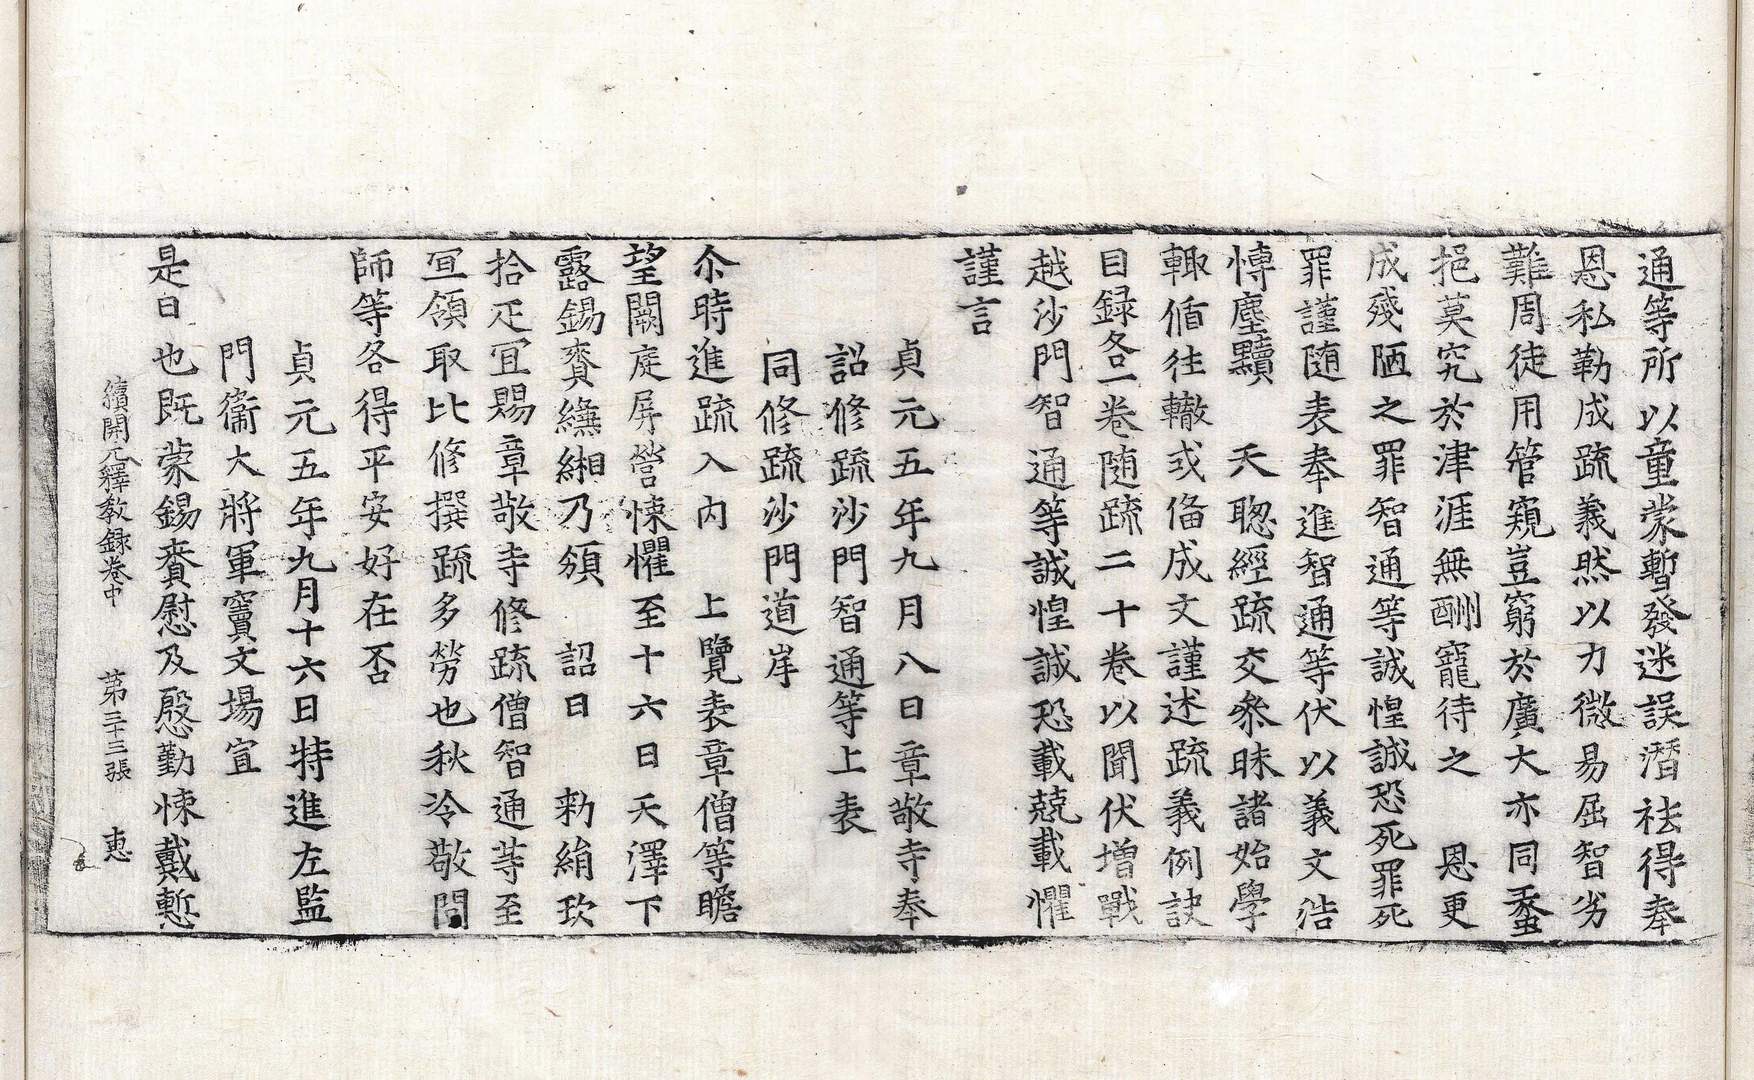 通等所以童蒙暫發迷誤潛祛得奉
恩私勒成疏義然以力微易屈智劣
難周徒用管窺豈窮於廣大亦同蠡
挹莫究於津涯無酬寵待之 恩更
成殘陋之罪智通等誠惶誠恐死罪死
罪謹随表奉進智通等伏以義文浩
愽塵黷 天聦經疏交叅昧諸始學
輙循往轍或俻成文謹述疏義例訣
目録各一卷随疏二十卷以聞伏增戰
越沙門智通等誠惶誠恐載兢載懼
謹言
貞元五年九月八日章敬寺奉
詔修疏沙門智通等上表
同修疏沙門道岸
尒時進疏入內 上覽表章僧等瞻
望闕庭屏營悚懼至十六日天澤下
露錫賚繒緗乃頒 詔曰 勑絹玖
拾疋冝賜章敬寺修疏僧智通等至
冝領取比修撰疏多勞也秋冷敬問
師等各得平安好在否
貞元五年九月十六日特進左監
門衞大將軍竇文場宣
是日也既蒙錫賚慰及慇勤悚戴慙
續開元釋教録卷中 第三十三張 惠